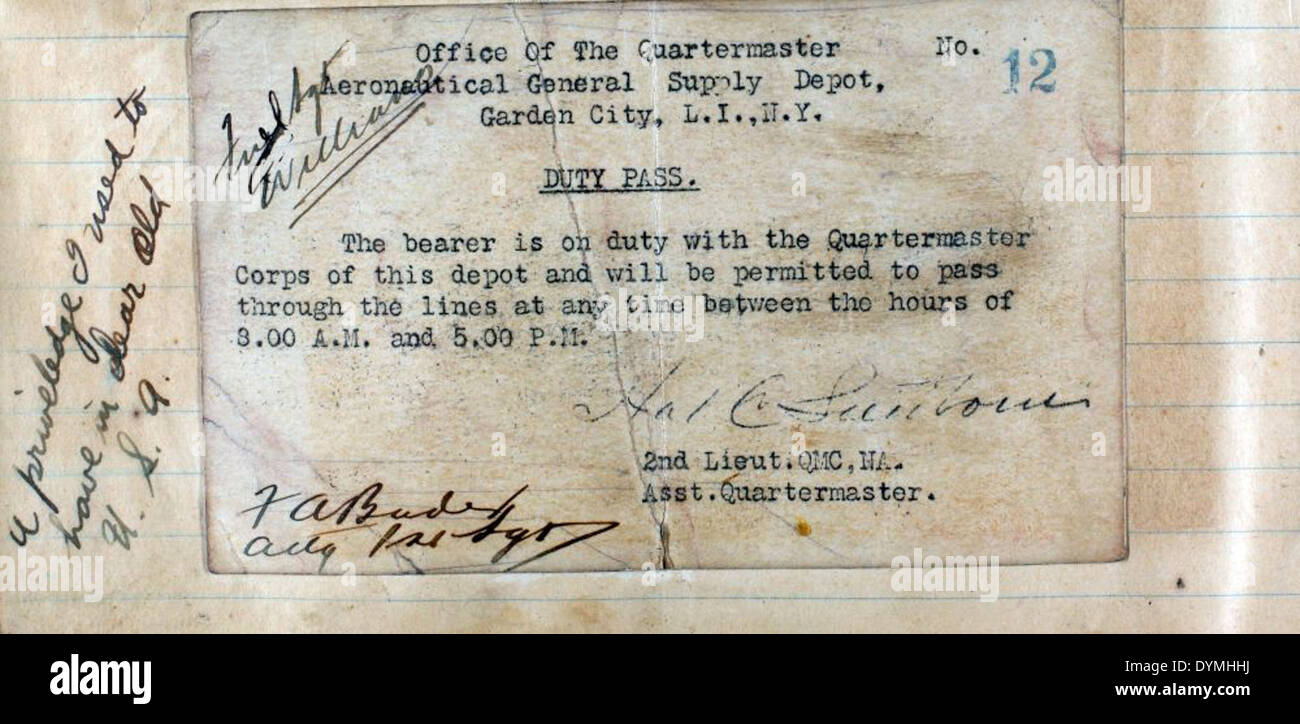 a priveledge I used to
have in dear old
U. S. A.
Office Of The Quartermaster No. 12
Aeronautical General Supply Depot,
Garden City, L.I.,N.Y.
Sgt
Williams
DUTY PASS.
The bearer is on duty with the Quartermaster
Corps of this depot and will be permitted to pass
through the lines at any time between the hours of
8.00 A.M. and 5.00 P.M.
Hal C
2nd Lieut.QMC,NA.
Asst.Quartermaster.
F A
Actg 1st Sgt
alamy
Image ID: DYMHHJ
www.alamy.com